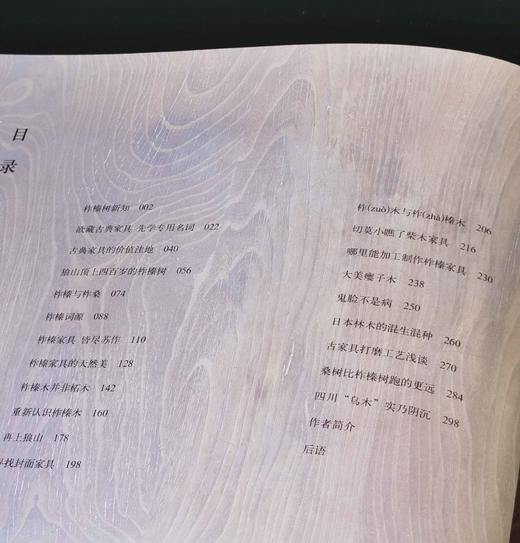 目
录
柞榛树新知 002
欲藏古典家具 先学专用名词 022
古典家具的价值洼地 040
狼山顶上四百岁的柞榛树 056
柞榛与柞桑 074
柞榛词源 088
柞榛家具 皆尽苏作 110
柞榛家具的天然美 128
柞榛木并非柘木 142
重新认识柞榛木 160
再上狼山 178
寻找封面家具 198
柞(zuò)木与柞(zhà)榛木 206
切莫小瞧了柴木家具 216
哪里能加工制作柞榛家具 230
大美瘿子木 238
鬼脸不是病 250
日本林木的混生混种 260
古家具打磨工艺浅谈 270
桑树比柞榛树跑的更远 284
四川“乌木”实乃阴沉 298
作者简介
后语